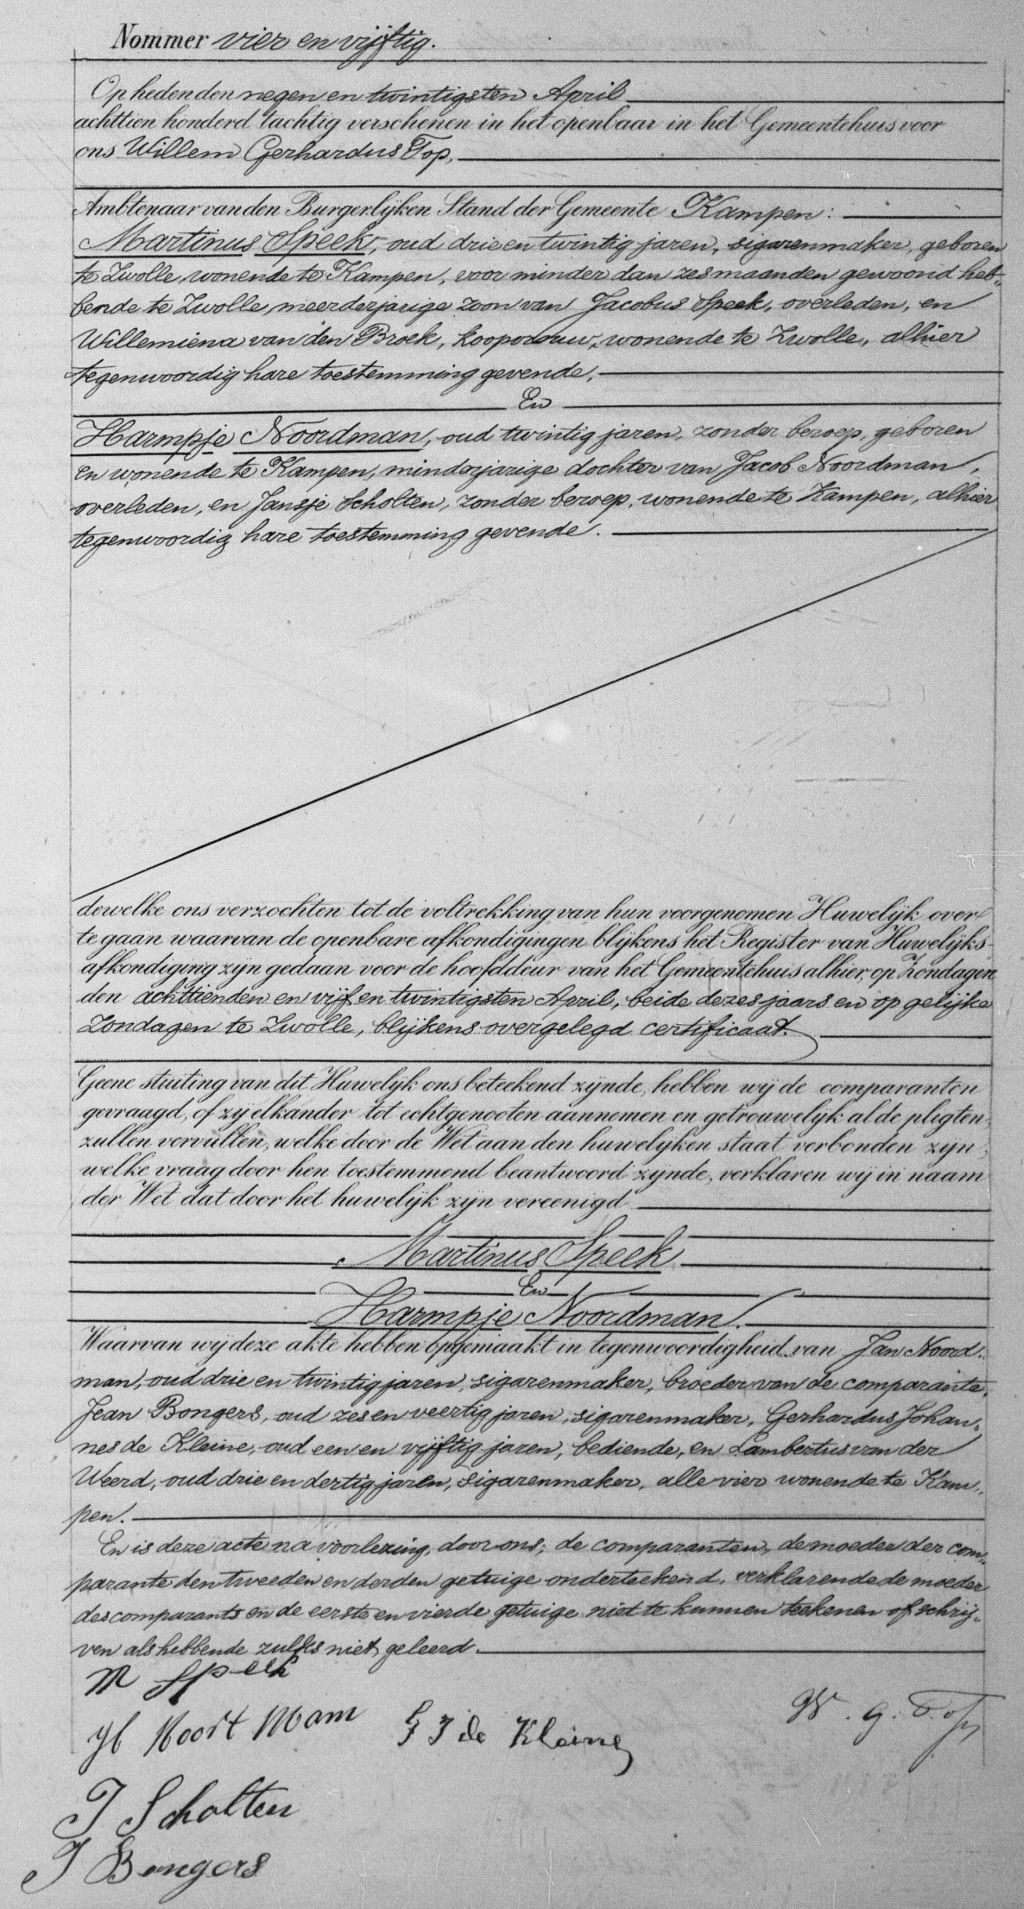 Nommer vier en vijftig.
Op heden den negen en twintigsten April
achttien honderd tachtig verschenen in het openbaar in het Gemeentehuis voor
ons Willem Gerhardus Top,
Ambtenaar van den Burgerlijken Stand der Gemeente Kampen:
Martinus Speek, oud drie en twintig jaren, sigarenmaker, geboren
te Zwolle, wonende te Kampen, voor minder dan zes maanden gewoond heb-
bende te Zwolle, meerderjarige zoon van Jacobus Speek, overleden, en
Willemiena van den Broek, koopvrouw, wonende te Zwolle, alhier
tegenwoordig hare toestemming gevende,
En
Harmpje Noordman, oud twintig jaren, zonder beroep, geboren
en wonende te Kampen, minderjarige dochter van Jacob Noordman,
overleden, en Jansje Scholten, zonder beroep, wonende te Kampen, alhier
tegenwoordig hare toestemming gevende.
dewelke ons verzochten tot de voltrekking van hun voorgenomen Huwelijk over
te gaan waarvan de openbare afkondigingen blijkens het Register van Huwelijks-
afkondiging zijn gedaan voor de hoofddeur van het Gemeentehuis alhier, op Zondagen
den achttienden en vijf en twintigsten April, beide dezes jaars en op gelijke
Zondagen te Zwolle, blijkens overgelegd certificaat.
Geene stuiting van dit Huwelijk ons beteekend zijnde, hebben wij de comparanten
gevraagd, of zij elkander tot echtgenooten aannemen en getrouwelijk al de pligten
zullen vervullen, welke door de Wet aan den huwelijken staat verbonden zijn,
welke vraag door hen toestemmend beantwoord zijnde, verklaren wij in naam
der Wet dat door het huwelijk zijn vereenigd
Martinus Speek
En
Harmpje Noordman.
Waarvan wij deze akte hebben opgemaakt in tegenwoordigheid van Jan Noord-
man, oud drie en twintig jaren, sigarenmaker, broeder van de comparante,
Jean Bongers, oud zes en veertig jaren, sigarenmaker, Gerhardus Johan-
nes de Kleine, oud een en vijftig jaren, bediende, en Lambertus van der
Weerd, oud drie en dertig jaren, sigarenmaker, alle vier wonende te Kam-
pen.
En is deze acte na voorlezing, door ons, de comparanten, de moeder der com-
parante den tweeden en derden getuige onderteekend, verklarende de moeder
des comparants en de eerste en vierde getuige niet te kunnen teekenen of schrij-
ven als hebbende zulks niet geleerd.
M Speek
H Noort Mam
G J de Kleine
W. G. Top
J Scholten
J Bongers